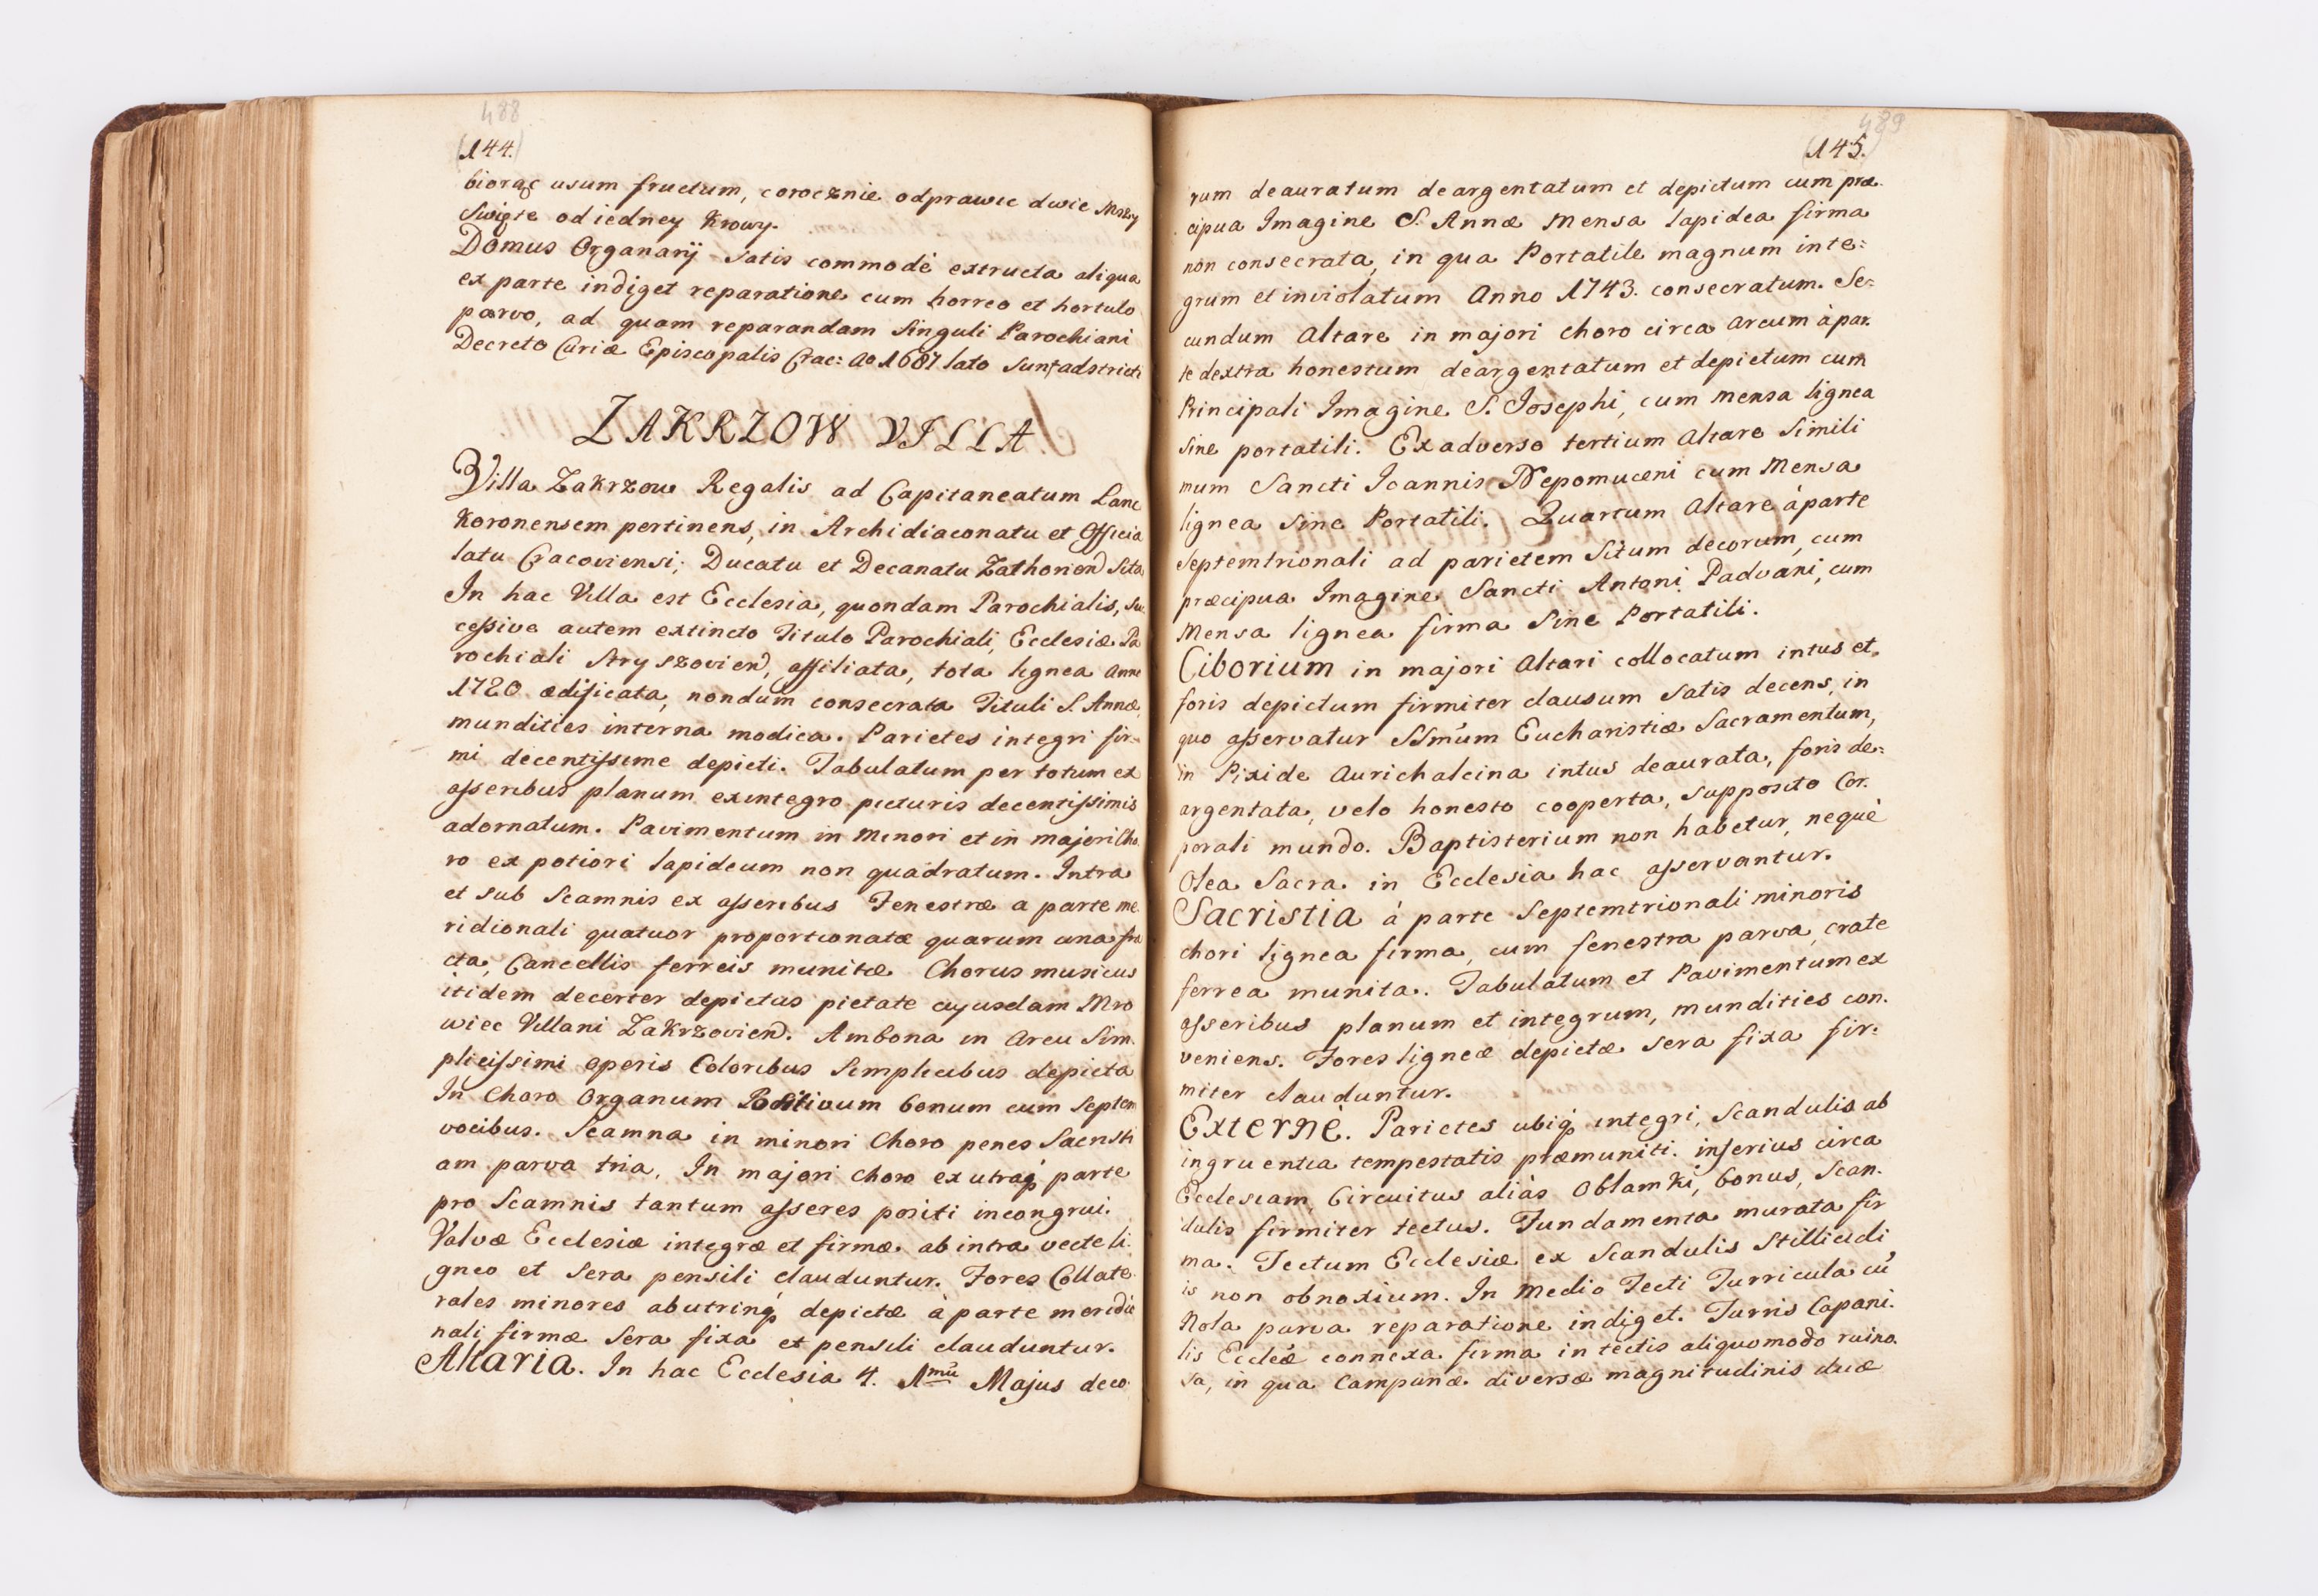 488
(144.)
biorąc usum fructum, corocznie odprawic dwie Mszy
Swięte od iedney Krowy.
Domus Organarij satis commodè extructa aliqua
ex parte indiget reparatione cum horreo et hortulo
parvo, ad quam reparandam singuli Parochiani
Decreto Curiæ Episcopalis Crac: ao 1687 lato sunt adstricti
ZAKRZOW VILLA
Villa Zakrzow Regalis ad Capitaneatum Lanc
Koronensem pertinens, in Archidiaconatu et Officia
latu Cracoviensi; Ducatu et Decanatu Zathorien sita
In hac Villa est Ecclesia, quondam Parochialis, suc
cessive autem extincto Titulo Parochiali, Ecclesiæ Pa
rochiali Stryszovien, affiliata, tota lignea Anno
1720 ædificata, nondum consecrata Tituli S. Annæ,
mundities interna modica. Parietes integri fir-
mi decentissime depicti. Tabulatum per totum ex
asseribus planum exintegro picturis decentissimis
adornatum. Pavimentum in minori et in majori Cho
ro ex potiori lapideum non quadratum. Intra
et sub scamnis ex asseribus Fenestræ a parte me
ridionali quatuor proportionatæ quarum una fra
cta, Cancellis ferreis munitæ Chorus musicus
itidem decenter depictas pietate cujusdam Mro
wiec Villani Zakrzovien. Ambona in Arcu Sim
plicissimi operis Coloribus simplicibus depicta
In Choro Organum Positivum bonum cum septem
vocibus. Scamna in minori Choro penes Sacristi
am parva tria, In majori choro ex utraq parte
pro Scamnis tantum asseres positi incongrui.
Valvæ Ecclesiæ integræ et firmæ ab intra vecte li
gneo et sera pensili clauduntur. Fores Collate
rales minores abutrinq depictæ à parte meridio
nali firmæ sera fixa et pensili clauduntur.
Altaria. In hac Ecclesia 4. 1mũ Majus deco
489
(145.)
rum deauratum deargentatum et depictum cum præ
cipua Imagine S. Annæ Mensa lapidea firma
non consecrata, in qua Portatile magnum inte:
grum et inviolatum Anno 1743. consecratum. Se:
cundum Altare in majori choro circa Arcum à par.
te dextra honestum deargentatum et depictum cum
Principali Imagine S. Josephi, cum mensa lignea
sine portatili. Ex adverso tertium Altare simili
mum Sancti Joannis Nepomuceni cum Mensa
lignea sine Portatili. Quartum Altare à parte
septemtrionali ad parietem situm decorum, cum
præcipua Imagine Sancti Antoni Padvani, cum
Mensa lignea firma sine Portatili.
Ciborium in majori Altari collocatum intus et
foris depictum firmiter clausum satis decens, in
quo asservatur SSmum Eucharistiæ Sacramentum,
in Pixide Aurichalcina intus deaurata, foris de:
argentata, velo honesto cooperta, supposito Cor.
porali mundo. Baptisterium non habetur, nequè
Olea Sacra in Ecclesia hac asservantur.
Sacristia à parte Septemtrionali minoris
chori lignea firma, cum fenestra parva, crate
ferrea munita. Tabulatum et Pavimentum ex
asseribus planum et integrum, mundities con.
veniens. Fores ligneæ depictæ sera fixa fir:
miter clauduntur.
Externè. Parietes ubiq integri, Scandulis ab
ingruentia tempestatis præmuniti. inferius circa
Ecclesiam, Circuitus aliàs Oblamki, bonus, Scan.
dulis firmiter tectus. Fundamenta murata fir
ma. Tectum Ecclesiæ ex Scandulis Stillicidi
is non obnoxium. In medio Tecti Turricula cũ
Nola parva reparatione indiget. Turris Capani.
lis Eccleæ connexa firma in tectis aliquomodo ruino.
sa, in qua Campanæ diversæ magnitudinis duæ